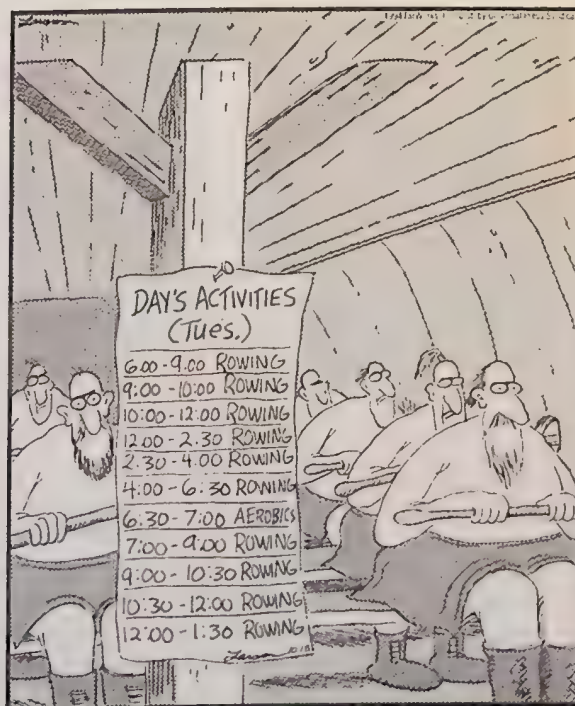 Larson
DAY'S ACTIVITIES
(Tues.)
6:00 - 9:00 ROWING
9:00 - 10:00 ROWING
10:00 - 12:00 ROWING
12:00 - 2:30 ROWING
2:30 - 4:00 ROWING
4:00 - 6:30 ROWING
6:30 - 7:00 AEROBICS
7:00 - 9:00 ROWING
9:00 - 10:30 ROWING
10:30 - 12:00 ROWING
12:00 - 1:30 ROWING
Larson 10-18